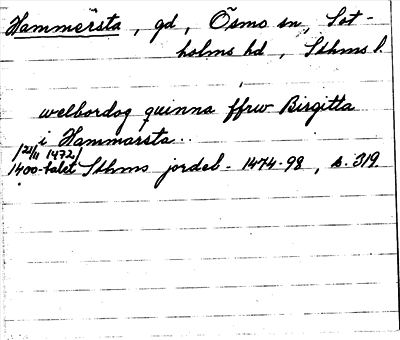 Hammersta, gd, Ösmo sn, Sot-
holms hd, Sthms l.
welbordog quinna ffrw Birgitta
i Hammarsta..
/21/11 1472/
1400-talet Sthms jordeb. 1474-98, s. 319